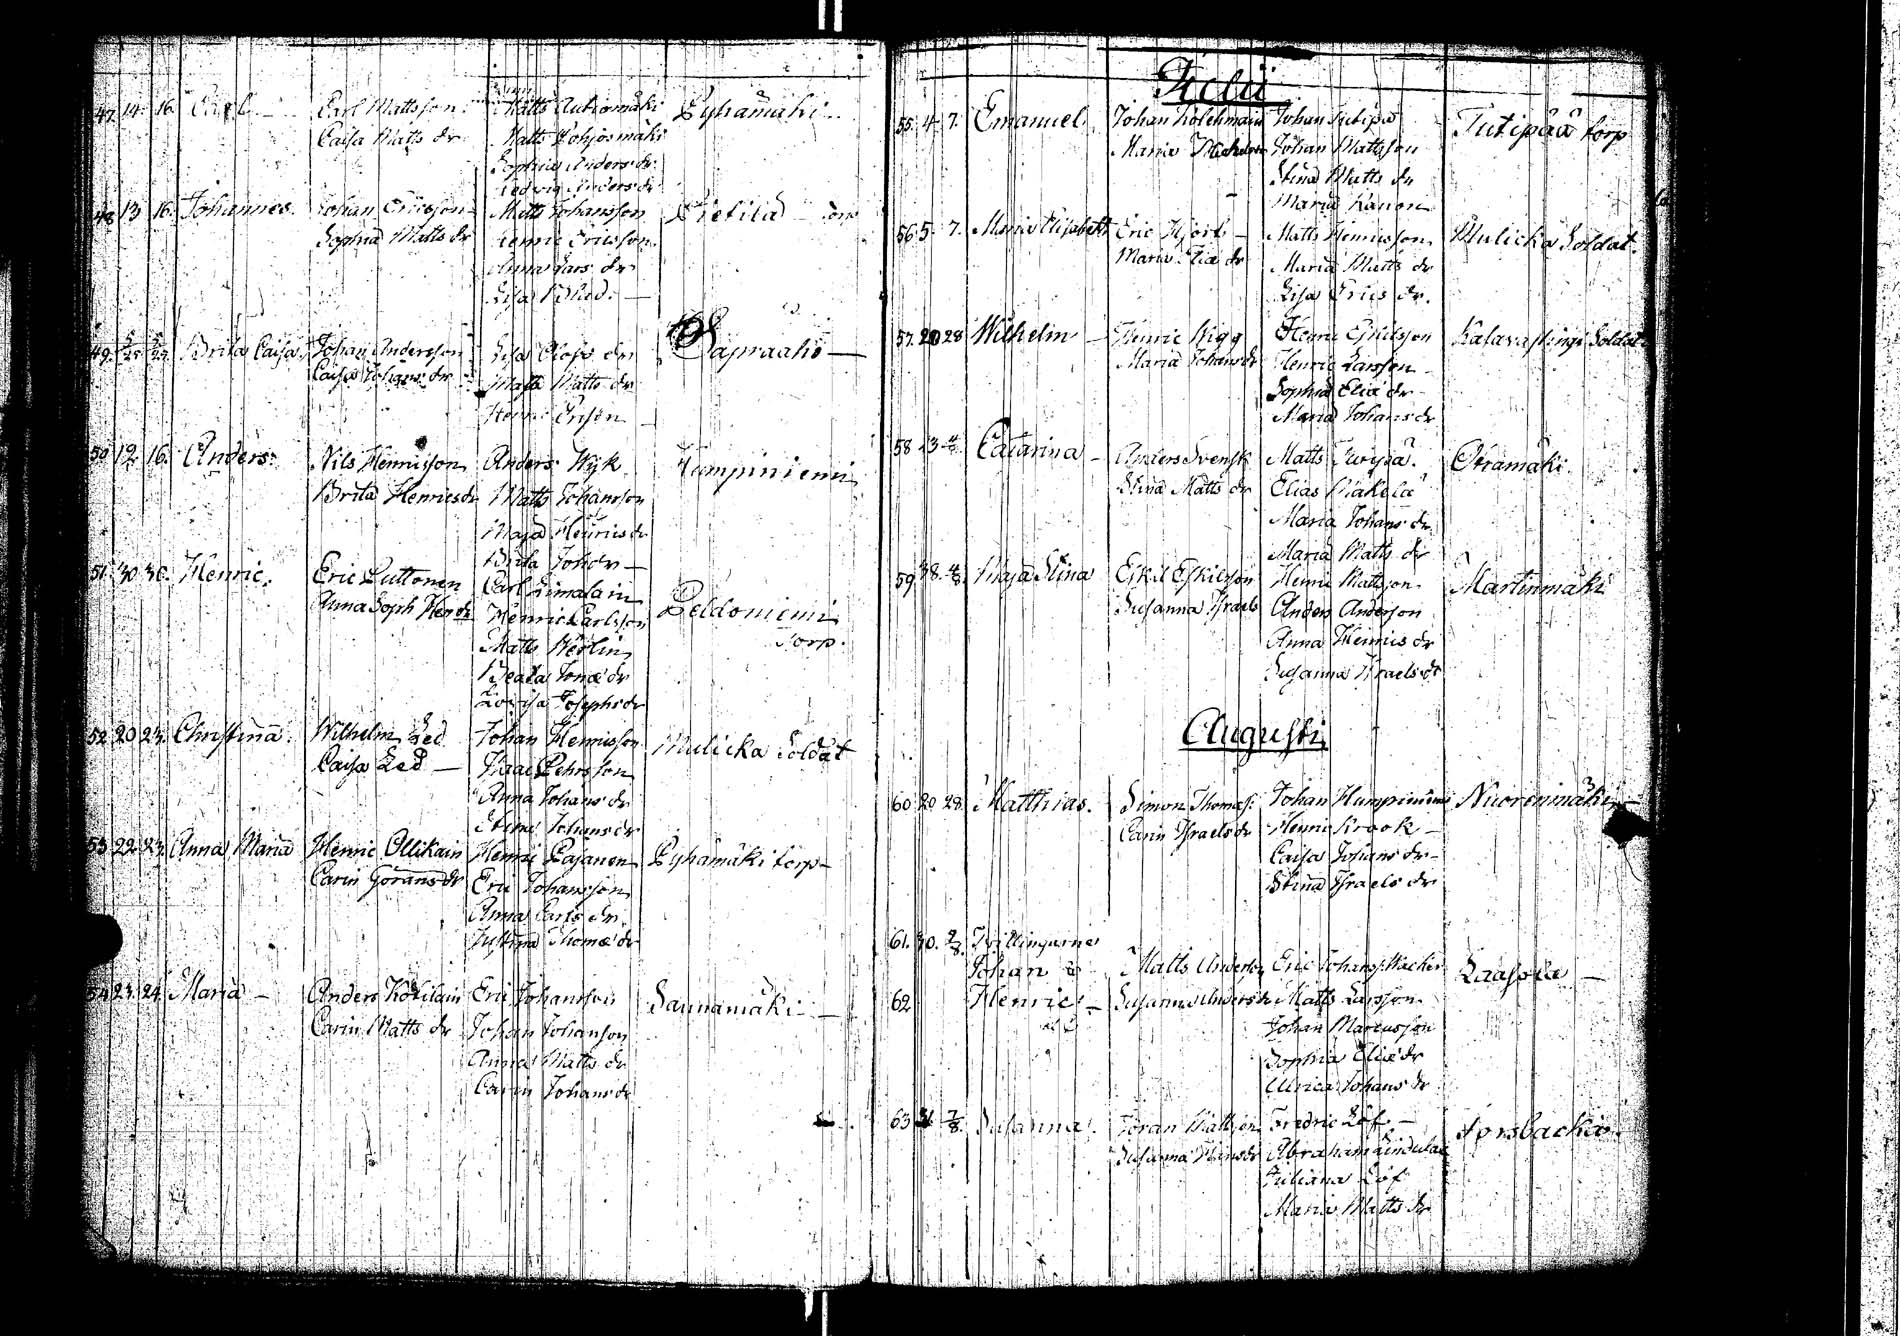 47. 14. 16. Carl — Carl Mattsson Matts Autiomäki Pyhämäki
Caisa Matts dr Matts Pohjosmäki
Sophia Anders dr
Hedvig Anders dr
48 13 16. Johannes. Johan Ericsson Matts Johansson Pietilä — torp
Sophia Matts dr Henric Ericsson
Anna Lars dr
Lisa
49. Brita Caisa Johan Andersson Lisa Olofs dr
Caisa Johans dr Matts dr
Henric
50 12. 16. Anders. Nils Henricsson Anders Wijk Humpiniemi
Brita Henrics dr Matts Johansson
Maja Henrics dr
Brita Joh dr —
51. 30 30. Henric. Eric Luttonen Carl Limalain Peldoniemi
Anna Soph Hen dr Henric Carlsson Torp.
Matts
Beata Jonæ dr
Lovisa Josephs dr
52 20 23. Christina. Wilhelm Led Johan Henricsson Mulicka Soldat
Caisa Led — Isaac Pehrsson
Anna Johans dr
Stina Johans dr
53 22 23. Anna Maria Henric Ollikain Henric Pajanen Pyhämäki torp —
Carin Görans dr Eric Johansson
Anna Carls dr
Justina Thomæ dr
54 23. 24. Maria — Anders Kotilain Eric Johansson Saunamäki —
Carin Matts dr Johan Johansson
Anna Matts dr
Carin Johans dr
Julii
55. 4. 7. Emanuel Johan Kolehmain Johan Jutipä Jutipää torp
Maria Johan Mattsson
Stina Matts dr
Maria Kanon
56 5. 7. Maria Elisabeth Eric Hjort — Matts Henricsson Mulicka Soldat.
Maria Eliæ dr Maria Matts dr
Lisa Erics dr.
57. 20 28 Wilhelm — Henric Wigg Henric Eskilsson Kalavastinge Soldat
Maria Johans dr Henric Larsson
Sophia Eliæ dr
Maria Johans dr
58 23 4/8 Catarina — Anders Svensk Matts Otramäki
Stina Matts dr Elias Mäkelä
Maria Johans dr
Maria Matts dr
59 28. 4/8 Maja Stina Eskil Eskilsson Henric Mattsson Martinmäki
Susanna Israels Anders Andersson
Anna Henrics dr
Susanna Israels dr
Augusti
60 20 28. Matthias. Simon Thomass. Johan Humpiniemi Nuorenmäki —
Carin Israels dr Henric Krook —
Caisa Johans dr —
Stina Israels dr
61. 30. Tvillingarne
Johan & Matts Anderson Eric Johanss. Wacker Laasola —
62 Henric. — Susanna Anders dr Matts Larsson
Johan Marcusson
Sophia Eliæ dr
Ulrica Johans dr
63 31 7/8. Susanna. Göran Mattsson Fredric Löf — Forsbacka.
Susanna Hans dr Abraham
Juliana Löf
Maria Matts dr